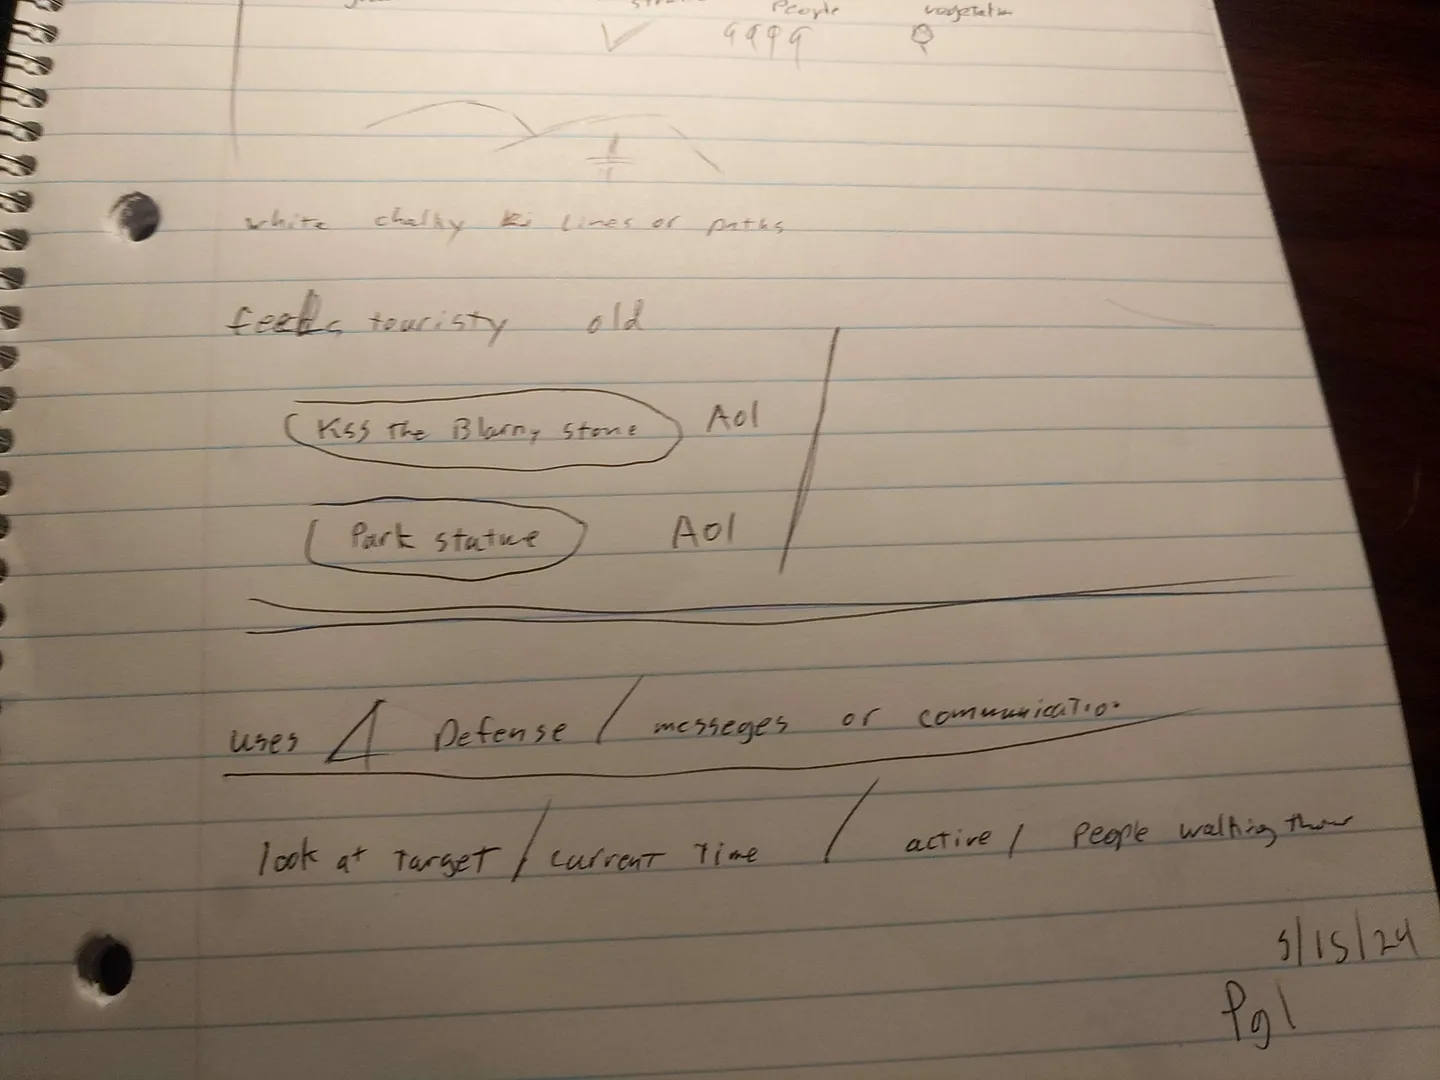 People vegetation
white chalky lines or paths
feels touristy old
Kss The Blarny stone Aol
Park statue Aol
uses Defense / messeges or communication
look at Target / current Time / active / People walking
5/15/24
Pg 1